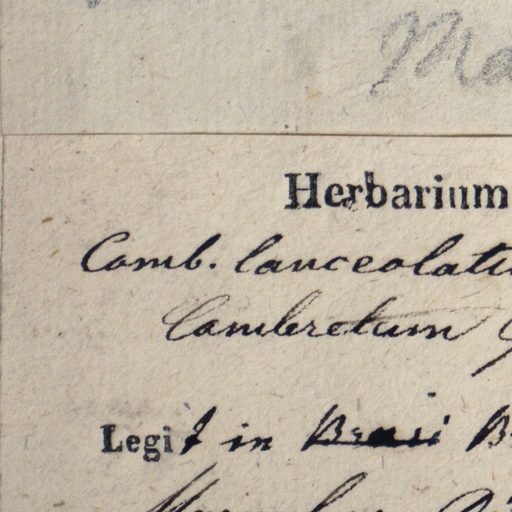 Ma
Herbarium
Comb. lanceolatu
Combretum
Legit in Brasi B